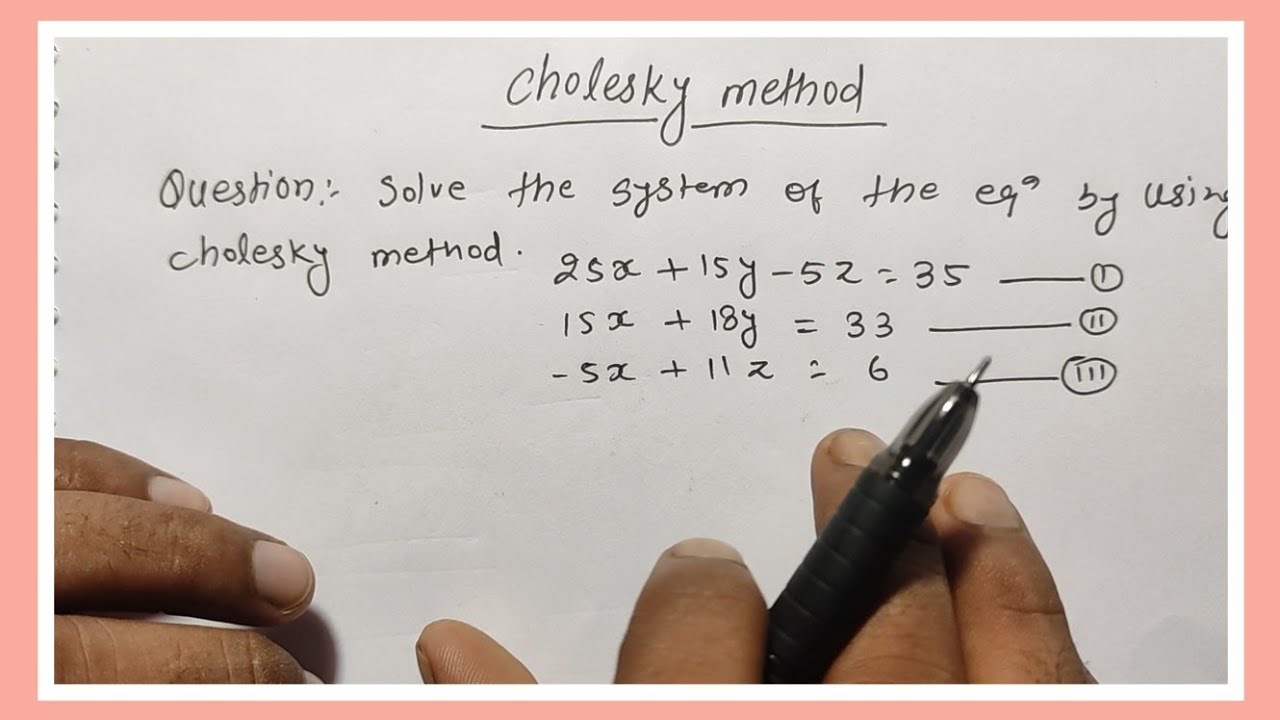 Cholesky method
Question:- Solve the system of the eqⁿ by using
cholesky method.
25x + 15y - 5z = 35 —— (I)
15x + 18y = 33 —— (II)
-5x + 11z = 6 —— (III)